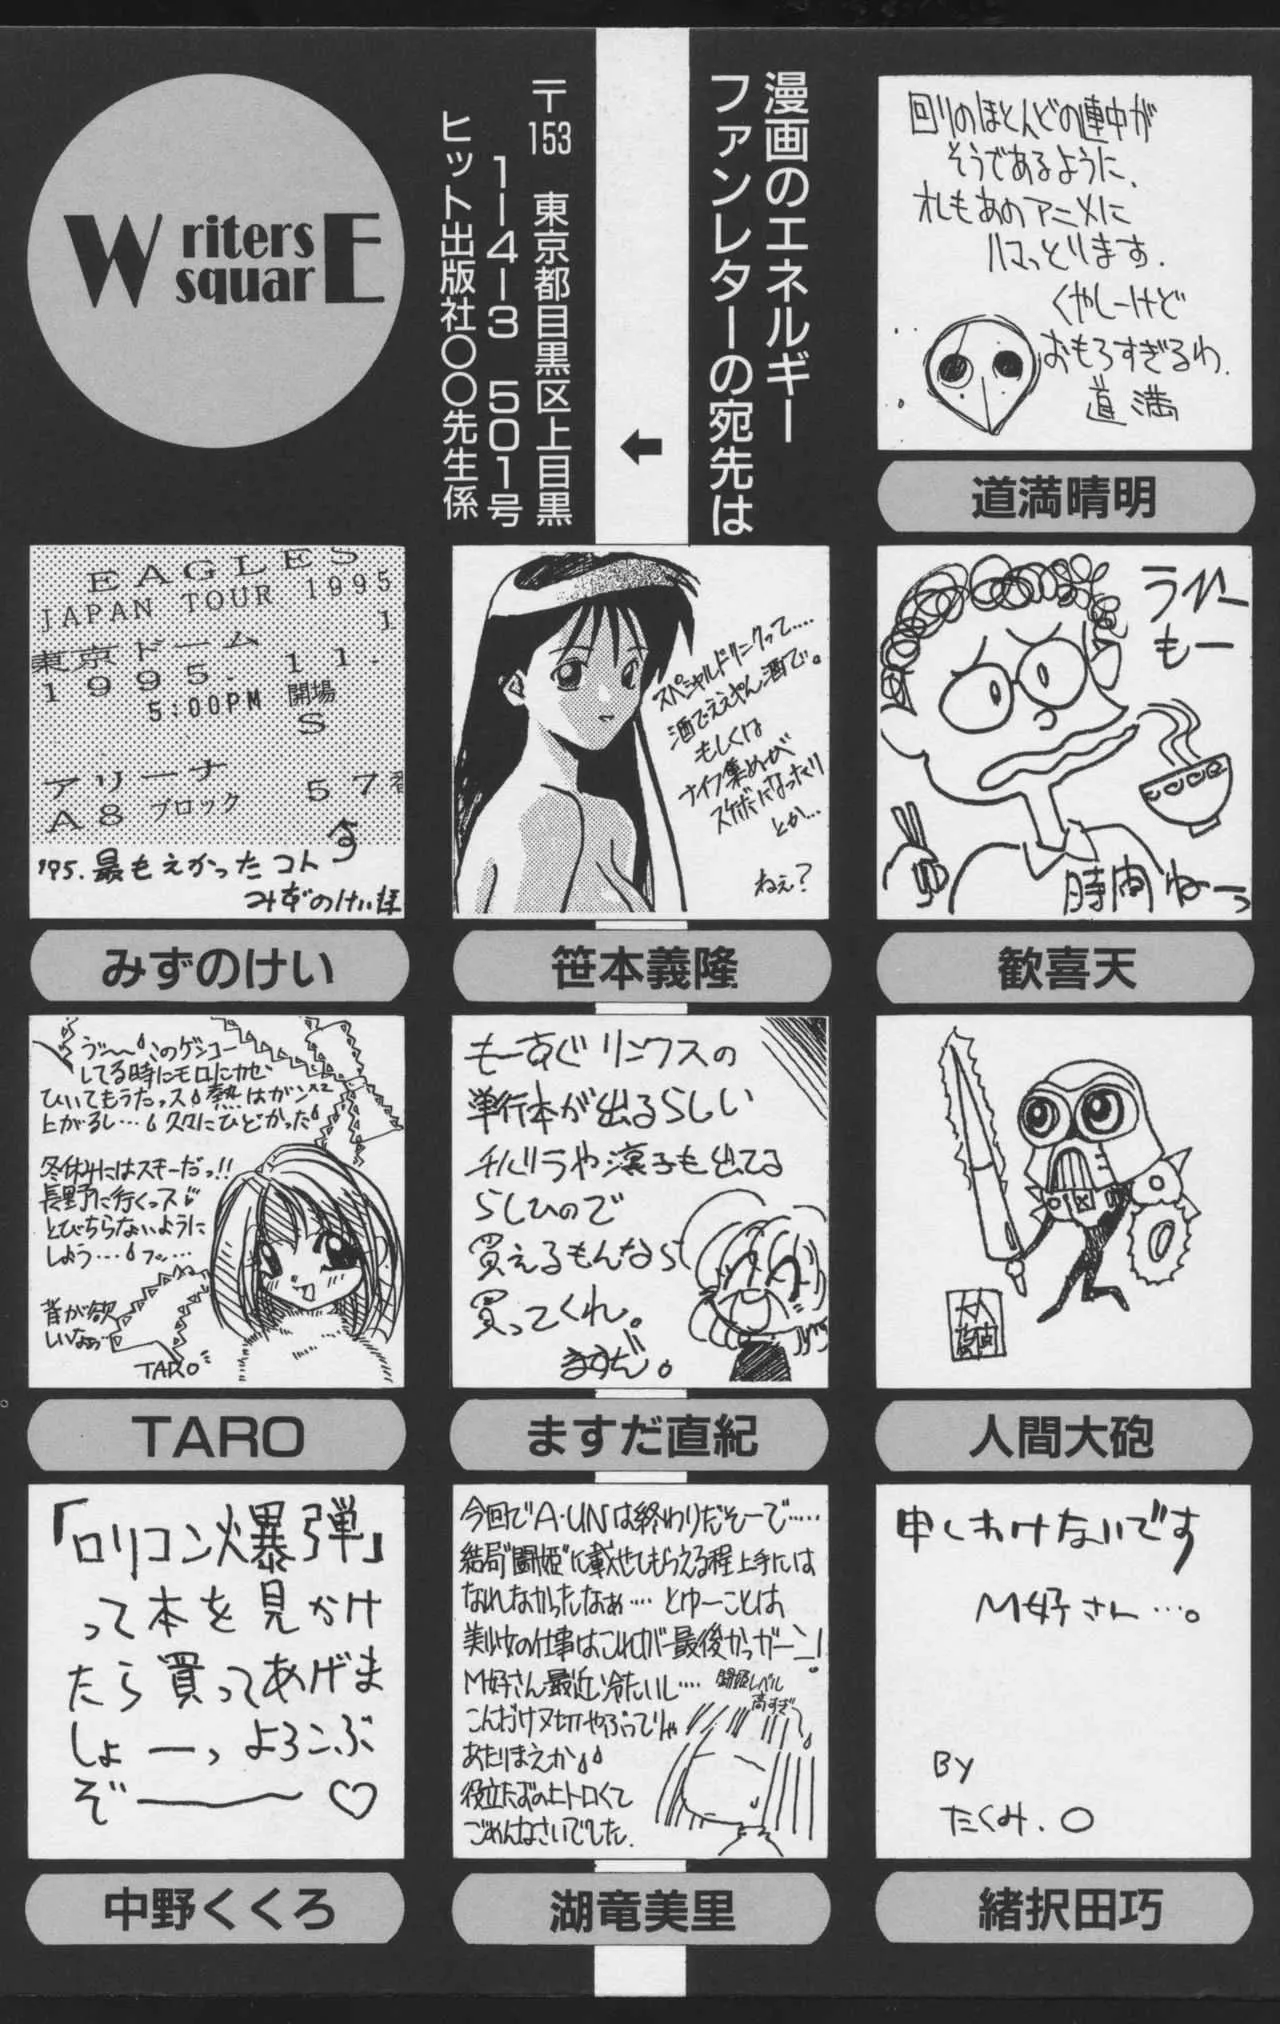 漫画のエネルギー
ファンレターの宛先は
〒153 東京都目黒区上目黒
1-4-3 501号
ヒット出版社〇〇先生係
Writers
squarE
回りのほとんどの連中が
そうであるように、
オレもあのアニメに
ハマっとります.
くやしーけど
おもろすぎるわ.
道満
道満晴明
EAGLES
JAPAN TOUR 1995
東京ドーム 1
1995.11.
5:00PM 開場
S
アリーナ 57番
A8 ブロック
'95.最もよかったコト
みずのけい様
みずのけい
スペシャルドリンクって....
酒でええやん酒で。
もしくは
ナイフ集めが
スケボになったくり
とか...
ねぇ?
笹本義隆
もー
時間ねーっ
歓喜天
う〜〜このゲンコー
してる時にモロにカゼ
ひいてもうたっス熱はガンガン
上がるし...久々にひどかった
冬休みにはスキーだっ!!
長野に行くっス
とびちらないように
しよう....フッ...
背が欲
しいなぁ
TARO
TARO
もーすぐリンクスの
単行本が出るらしい
チバトラや凛子も出てる
らしひので
買えるもんなら
買ってくれ。
ますだ。
ますだ直紀
人間大砲
人間大砲
「ロリコン爆弾」
って本を見かけ
たら買ってあげま
しょーっよろこぶ
ぞ――〜♡
中野くくろ
今回でA・UNは終わりだそーで.....
結局"闘姫"に載せてもらえる程上手には
なれなかったなぁ.... とゆーことは
美少女の仕事はこれが最後かっガーン!
M好さん最近冷たいし....
闘姫レベル
高すぎ
こんだけ〆切やぶってりゃ
あたりまえか
役立たずの上トロくて
ごめんなさいでした.
湖竜美里
申しわけないです
M好さん...。
By
たくみ.〇
緒択田巧